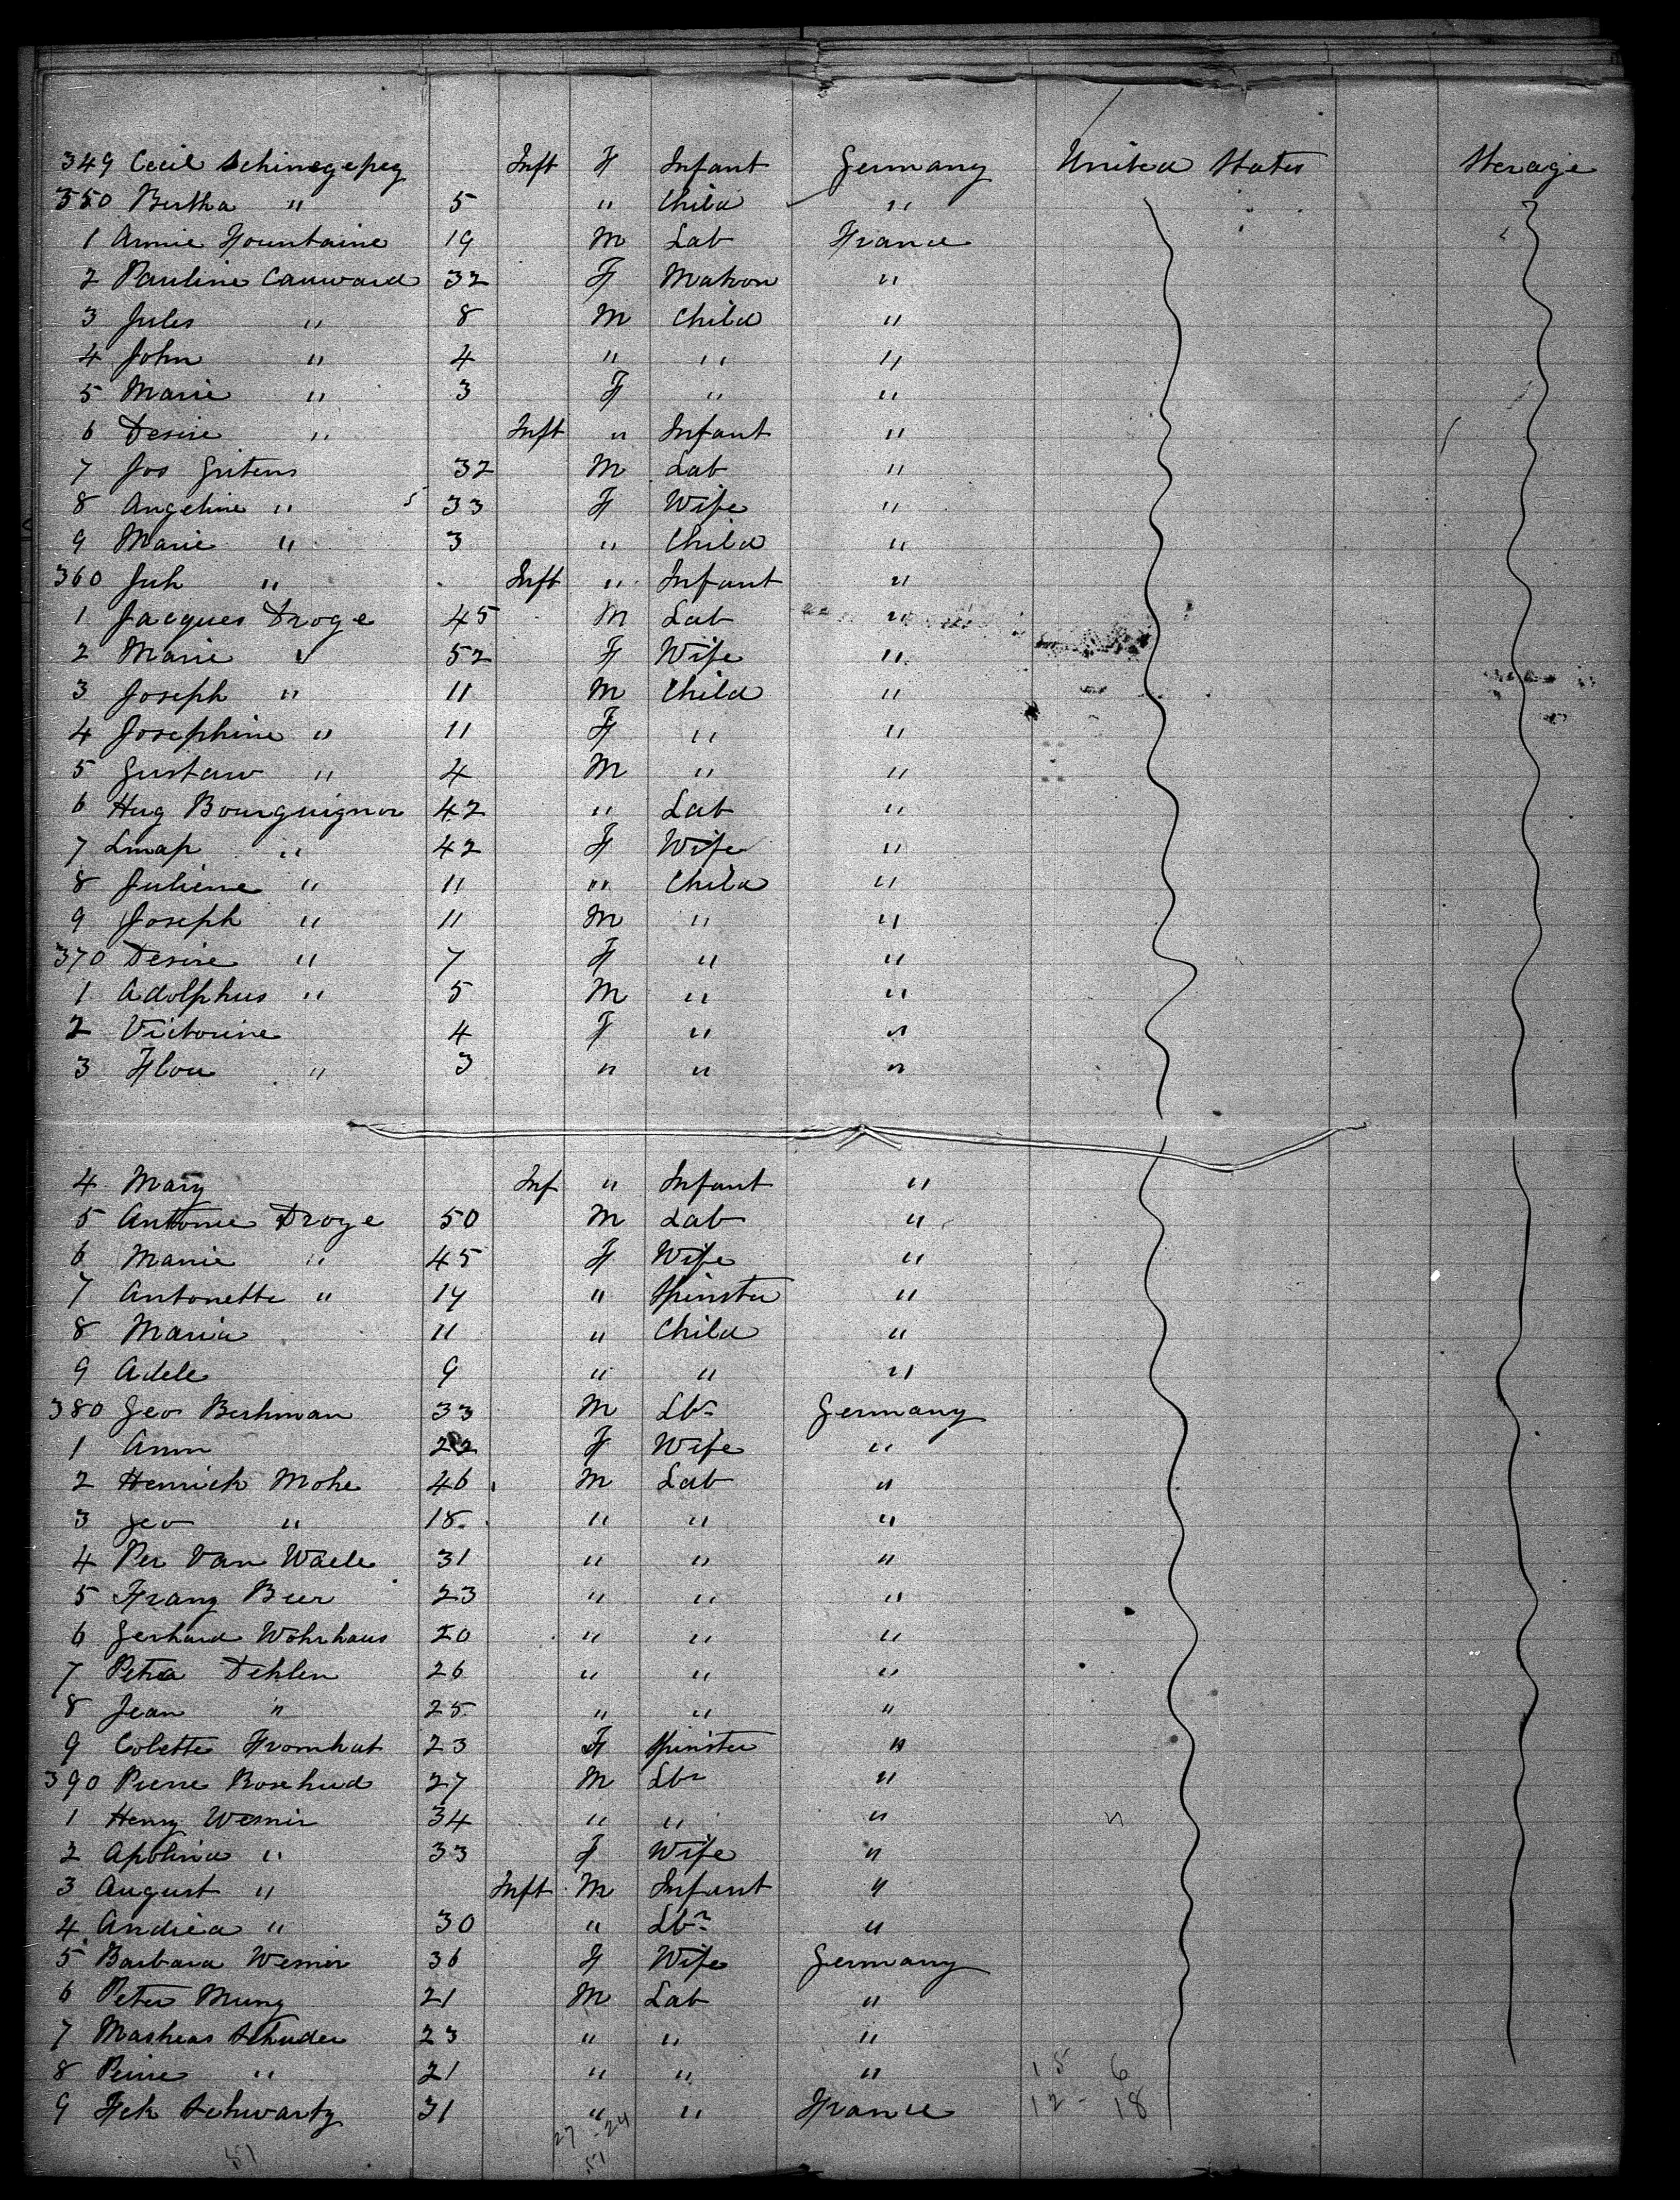 349 Cecil Schinegepeg Inft F Infant Germany United States Sterage
350 Bertha " 5 " Child "
1 Annie Fountaine 19 M Lab France
2 Pauline Cauward 32 F Matron "
3 Jules " 8 M Child "
4 John " 4 " " "
5 Marie " 3 F " "
6 Desire " Inft " Infant "
7 Jos Gritens 32 M Lab "
8 Angeline " 33 F Wife "
9 Marie " 3 " Child "
360 Juh " Inft " Infant "
1 Jacques Droge 45 M Lab "
2 Marie " 52 F Wife "
3 Joseph " 11 M Child "
4 Josephine " 11 F " "
5 Gustaw " 4 M " "
6 Hug Bourguignon 42 " Lab "
7 Lmap " 42 F Wife "
8 Juliene " 11 " Child "
9 Joseph " 11 M " "
370 Desire " 7 F " "
1 Adolphus " 5 M " "
2 Victorine 4 F " "
3 Flou " 3 " " "
4 Mary Inf " Infant "
5 Antonie Droge 50 M Lab "
6 Marie " 45 F Wife "
7 Antonette " 14 " Spinster "
8 Maria 11 " Child "
9 Adele 9 " " "
380 Geo Berhman 33 M Lbr Germany
1 Ann 22 F Wife "
2 Henrick Mohe 46 M Lab "
3 Geo " 18 " " "
4 Per Van Waele 31 " " "
5 Franz Beer 23 " " "
6 Gerhard Wohrhaus 20 " " "
7 Petra Dehlen 26 " " "
8 Jean " 25 " " "
9 Colette Fromhat 23 F Spinster "
390 Pierre Bosehud 27 M Lbr "
1 Henry Wernir 34 " " " "
2 Apolina " 33 F Wife "
3 August " Inft M Infant "
4 Andrea " 30 " Lbr "
5 Barbara Wernir 36 F Wife Germany
6 Peter Mung 21 M Lab "
7 Masheas Schuder 23 " " "
8 Peirre " 21 " " " 15 6
9 Fek Schwartz 31 " " France 12 - 18
27 - 24
51 51